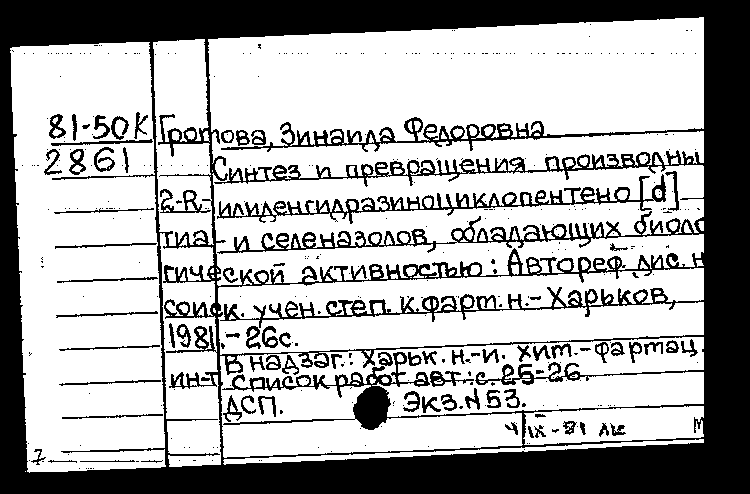 81-50К Громова, Зинаида Федоровна
2861 Синтез и превращения производны
2-R-илиденгидразиноциклопентено[d]
тиа- и селеназолов, обладающих биоло
гической активностью: Автореф. дис. н
соиск. учен. степ. к.фарм.н.- Харьков,
1981.- 26с.
В надзаг.: Харьк. н.-и. хим.-фармац.
ин-т Список работ авт.: с. 25-26.
ДСП. Экз.N53.
4/IX-81 М
7